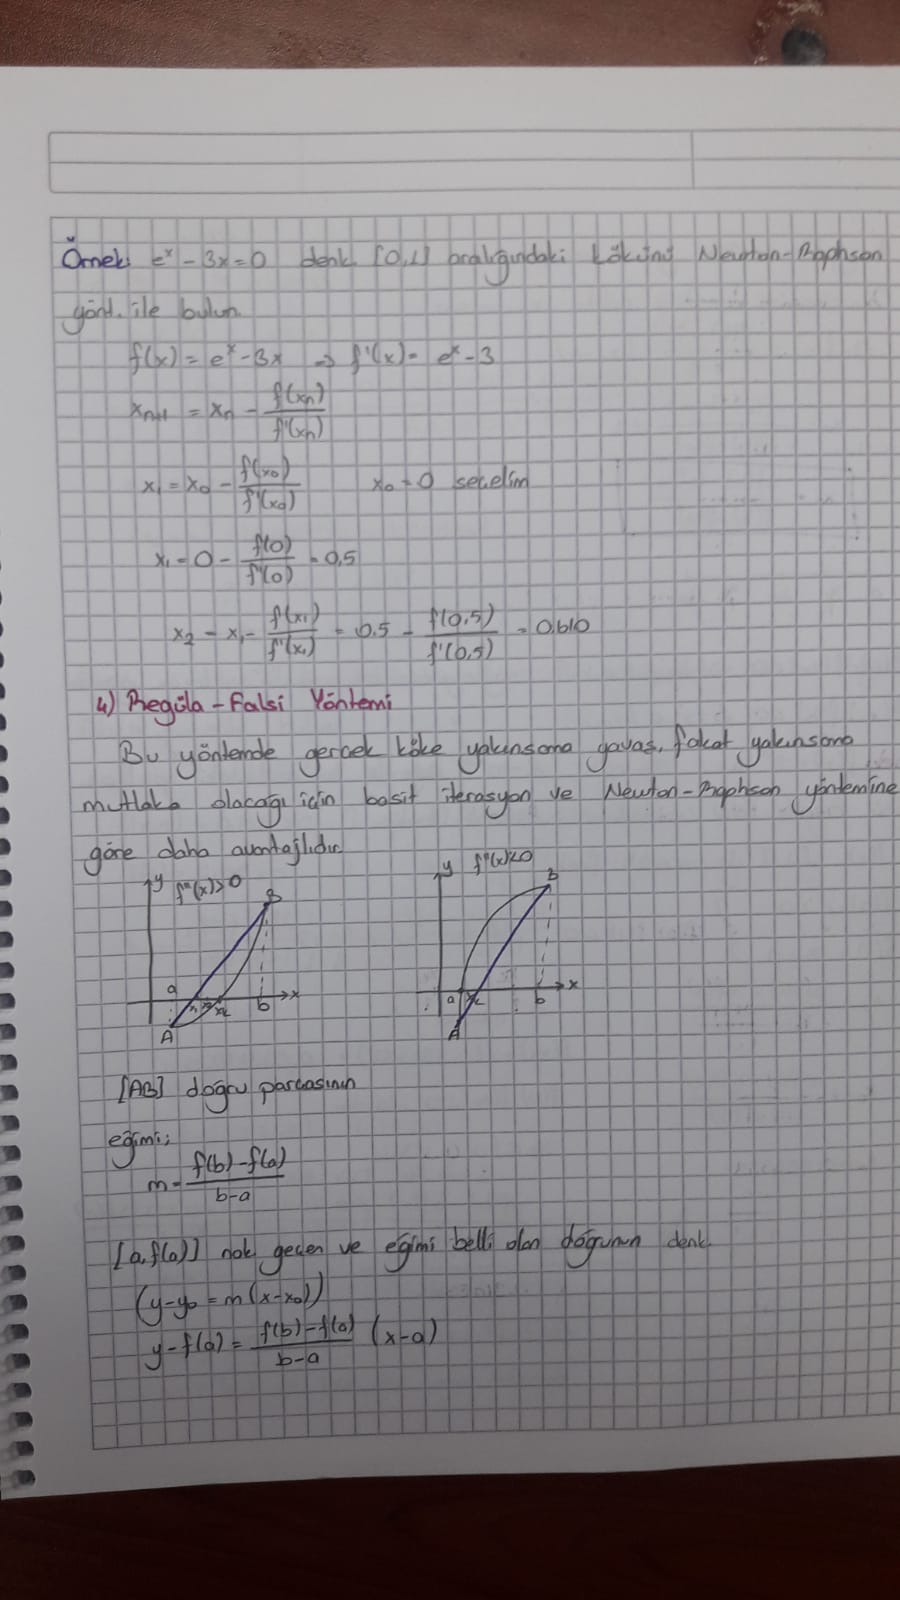 Örnek: eˣ - 3x = 0 denk. [0,1] aralığındaki kökünü Newton-Raphson
yönt. ile bulun.
f(x) = eˣ - 3x ⇒ f'(x) = eˣ - 3
xₙ₊₁ = xₙ - f(xₙ)/f'(xₙ)
x₁ = x₀ - f(x₀)/f'(x₀) x₀ = 0 seçelim
x₁ = 0 - f(0)/f'(0) = 0,5
x₂ = x₁ - f(x₁)/f'(x₁) = 0.5 - f(0,5)/f'(0,5) = 0.610
4) Regüla-Falsi Yöntemi
Bu yöntemde gerçek köke yakınsama yavaş, fakat yakınsama
mutlaka olacağı için basit iterasyon ve Newton-Raphson yöntemine
göre daha avantajlıdır.
y f''(x)>0 B a b x A
y f''(x)<0 B a b x A
[AB] doğru parçasının
eğimi;
m = f(b)-f(a)/b-a
[a,f(a)] nok geçen ve eğimi belli olan doğrunun denk.
(y-y₀ = m(x-x₀))
y-f(a) = f(b)-f(a)/b-a (x-a)